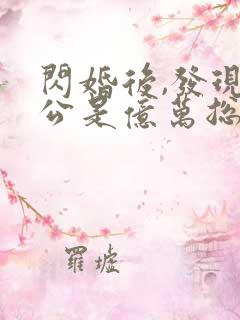 閃婚後,發現
公是億萬總
羅墟